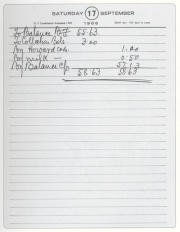 SATURDAY 17 SEPTEMBER
1966
To Balance B/F 55.63
To Collection Bols 3.00
By Howard 1.00
By milk — 0.50
By Balance c/o 57.13
58.63 58.63